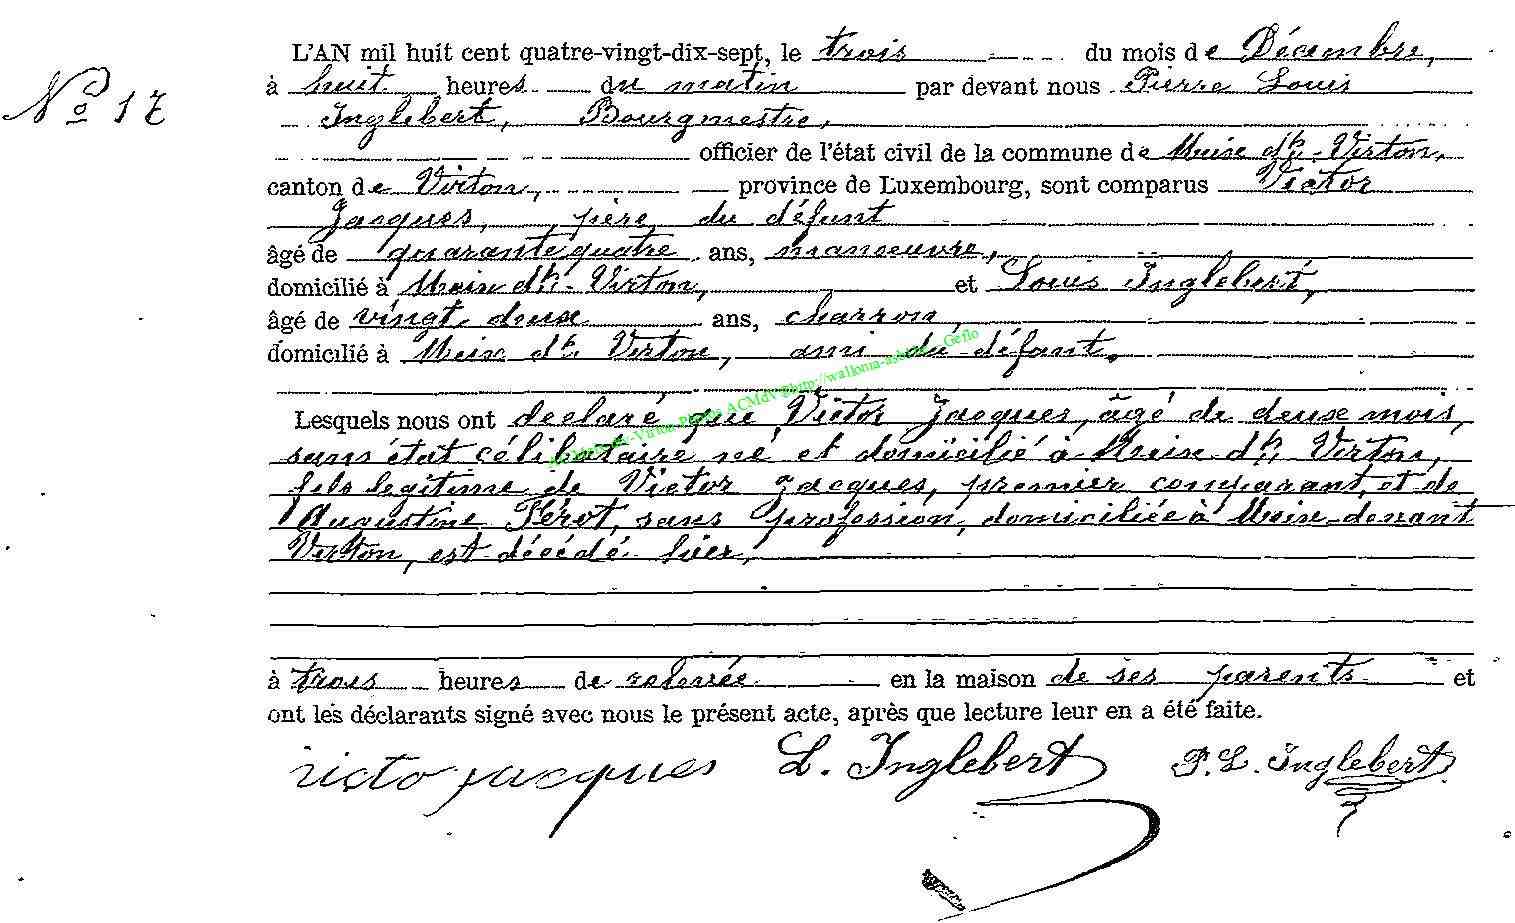 L'AN mil huit cent quatre-vingt-dix-sept, le trois du mois de Décembre,
No 17
à huit heures du matin par devant nous Pierre Louis
Inglebert, Bourgmestre,
officier de l'état civil de la commune de Meix dt. Virton,
canton de Virton, province de Luxembourg, sont comparus Victor
Jacques, père du défunt
âgé de quarante quatre ans, manoeuvre,
domicilié à Meix dt. Virton, et Louis Inglebert,
âgé de vingt deux ans, charron,
domicilié à Meix dt. Virton, ami du défunt.
Lesquels nous ont déclaré que Victor Jacques, âgé de deux mois,
sans état célibataire né et domicilié à Meix dt. Virton,
fils légitime de Victor Jacques, premier comparant, et de
Augustine Férot, sans profession, domiciliée à Meix-devant
Virton, est décédé hier,
à trois heures de relevée en la maison de ses parents et
ont les déclarants signé avec nous le présent acte, après que lecture leur en a été faite.
victo jacques L. Inglebert P. L. Inglebert